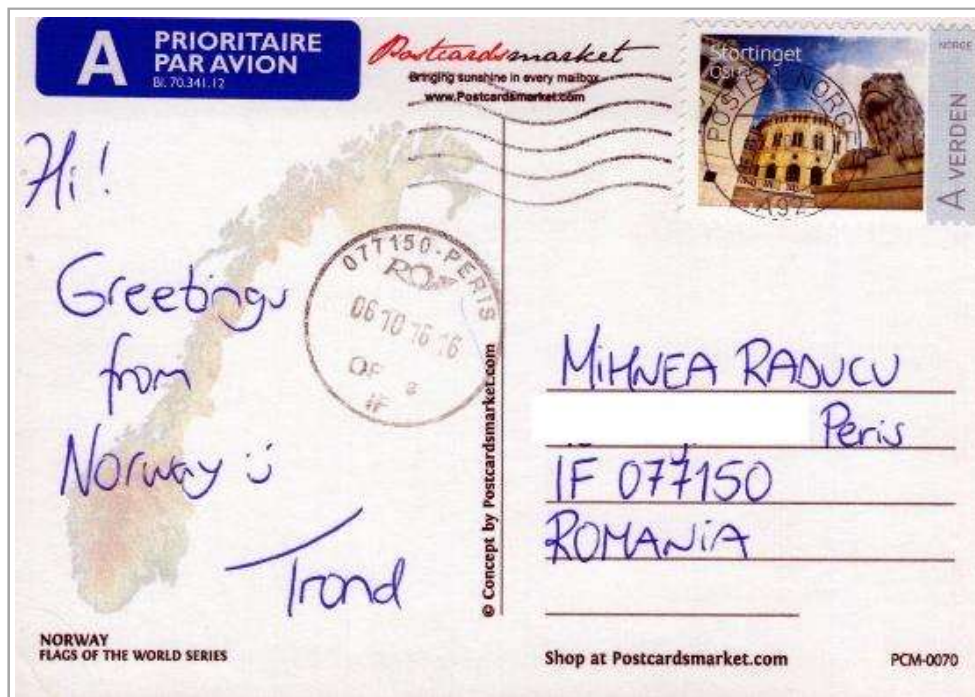 A PRIORITAIRE
PAR AVION
Bl. 70.341.12
Postcardsmarket
Bringing sunshine in every mailbox
www.Postcardsmarket.com
Stortinget
NORGE
A VERDEN
POSTEN NORGE
Hi!
Greetings
from
Norway :)
Trond
077150-PERIS
06 10 16 16
OF
IF
© Concept by Postcardsmarket.com
MiHNEA RADUCU
Peris
IF 077150
ROMANiA
NORWAY
FLAGS OF THE WORLD SERIES
Shop at Postcardsmarket.com
PCM-0070